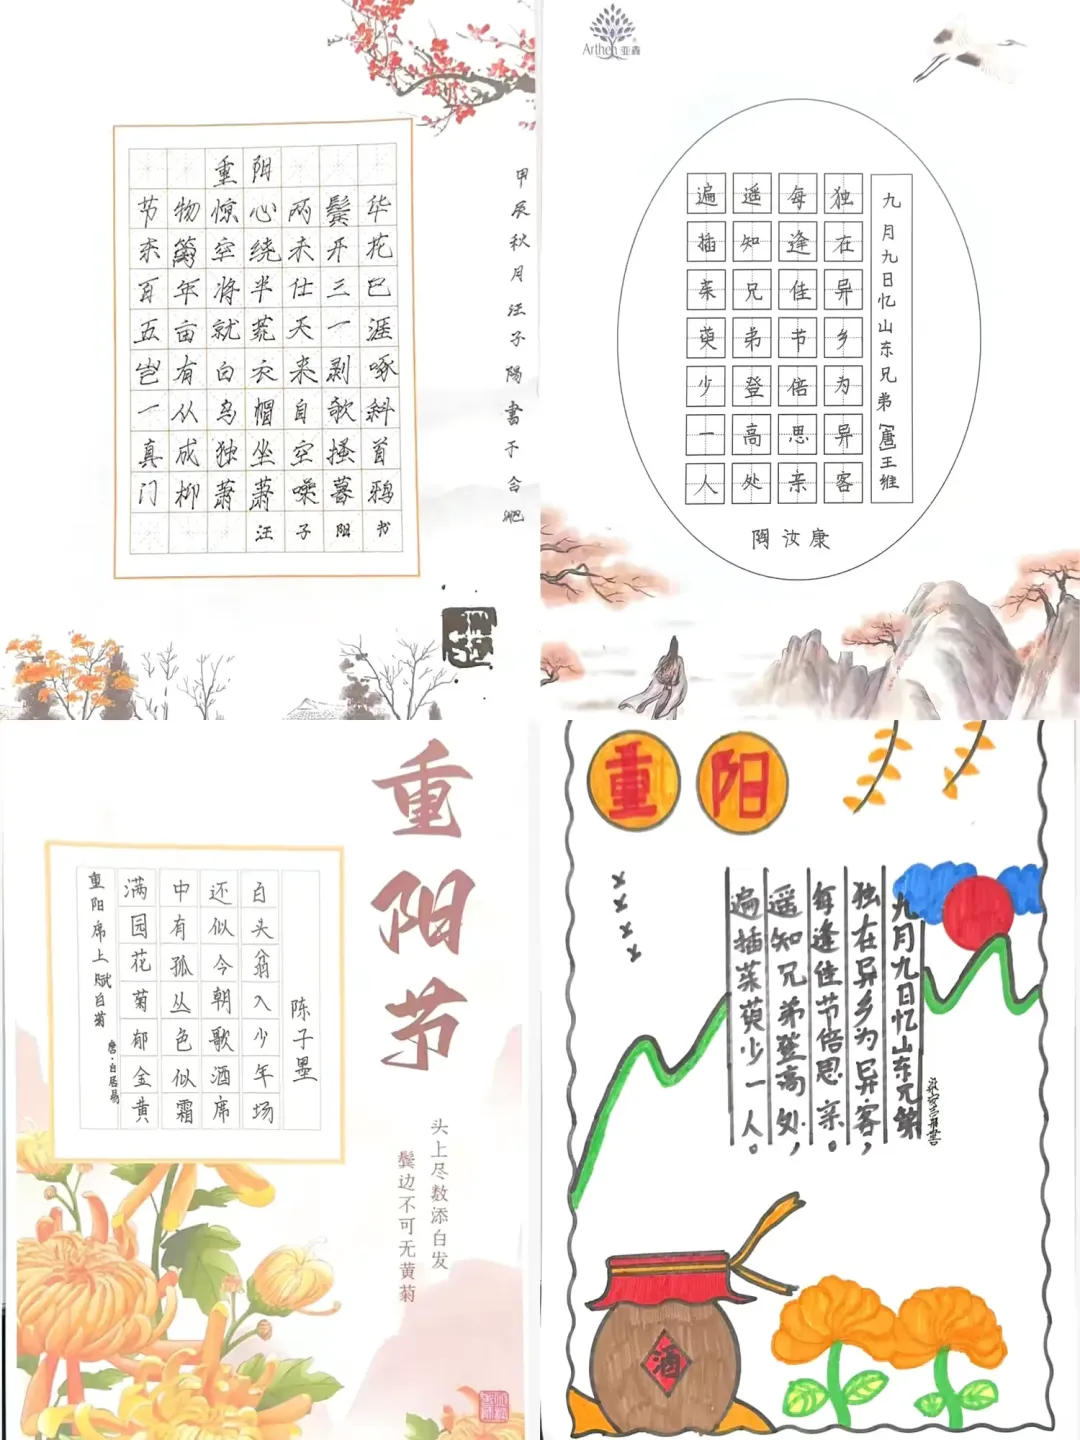 重阳
节物惊心两鬓华
东篱空绕未开花
百年将半仕三已
五亩就荒天一涯
岂有白衣来剥啄
一从乌帽自欹斜
真成独坐空搔首
门柳萧萧噪暮鸦
汪子阳书
甲辰秋月汪子陽書于合肥
Arthen 亚鑫
九月九日忆山东兄弟[唐]王维
独在异乡为异客
每逢佳节倍思亲
遥知兄弟登高处
遍插茱萸少一人
陶汝康
重阳节
头上尽数添白发
鬓边不可无黄菊
重阳席上赋白菊 唐·白居易
满园花菊郁金黄
中有孤丛色似霜
还似今朝歌酒席
白头翁入少年场
陈子墨
重阳
九月九日忆山东兄弟
独在异乡为异客，
每逢佳节倍思亲。
遥知兄弟登高处，
遍插茱萸少一人。
酒